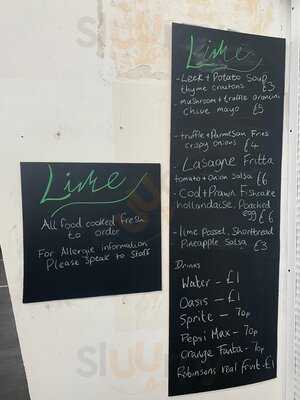 Lime
All food cooked fresh
to order
For Allergie information
Please speak to Staff
Lime
- Leek + Potato Soup
thyme croutons £3
mushroom + truffle arancini
chive mayo £5
- truffle + Parmesan Fries
crispy onions £4
- Lasagne Fritta
tomato + onion Salsa £6
- Cod + Prawn Fishcake
hollandaise, Poached
egg £6
- lime Posset, Shortbread
Pineapple Salsa £3
Drinks
Water - £1
Oasis - £1
Sprite - 70p
Pepsi Max - 70p
Orange Fanta - 70p
Robinsons real Fruit - £1
sluurpy